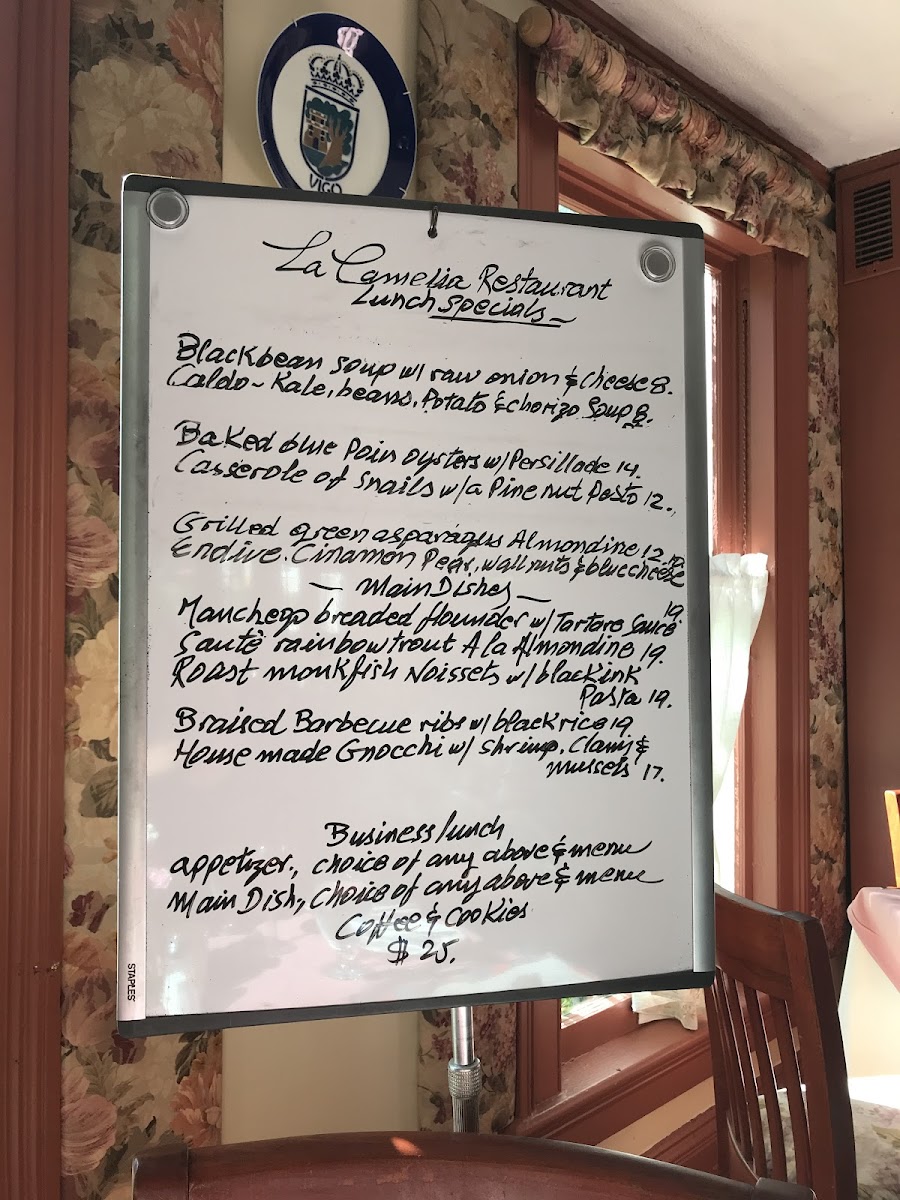 VIGO
La Camelia Restaurant
Lunch specials
Blackbean soup w/ raw onion & cheese 8.
Caldo - Kale, beans, Potato & chorizo Soup 8.
Baked blue Poin oysters w/ Persillade 14.
Casserole of snails w/a Pine nut Pesto 12.
Grilled green asparagus Almondine 12.
Endive. Cinamon Pear, wallnuts & bluecheese
Main Dishes
Manchego breaded flounder w/ Tartare sauce 19.
Sautè rainbow trout A la Almondine 19.
Roast monkfish Noissets w/ black ink
Pasta 19.
Braised Barbecue ribs w/ black rice 19
House made Gnocchi w/ shrimp, Clams &
mussels 17.
Business lunch
appetizer., choice of any above & menu
Main Dish, choice of any above & menu
Coffee & cookies
$ 25.
STAPLES